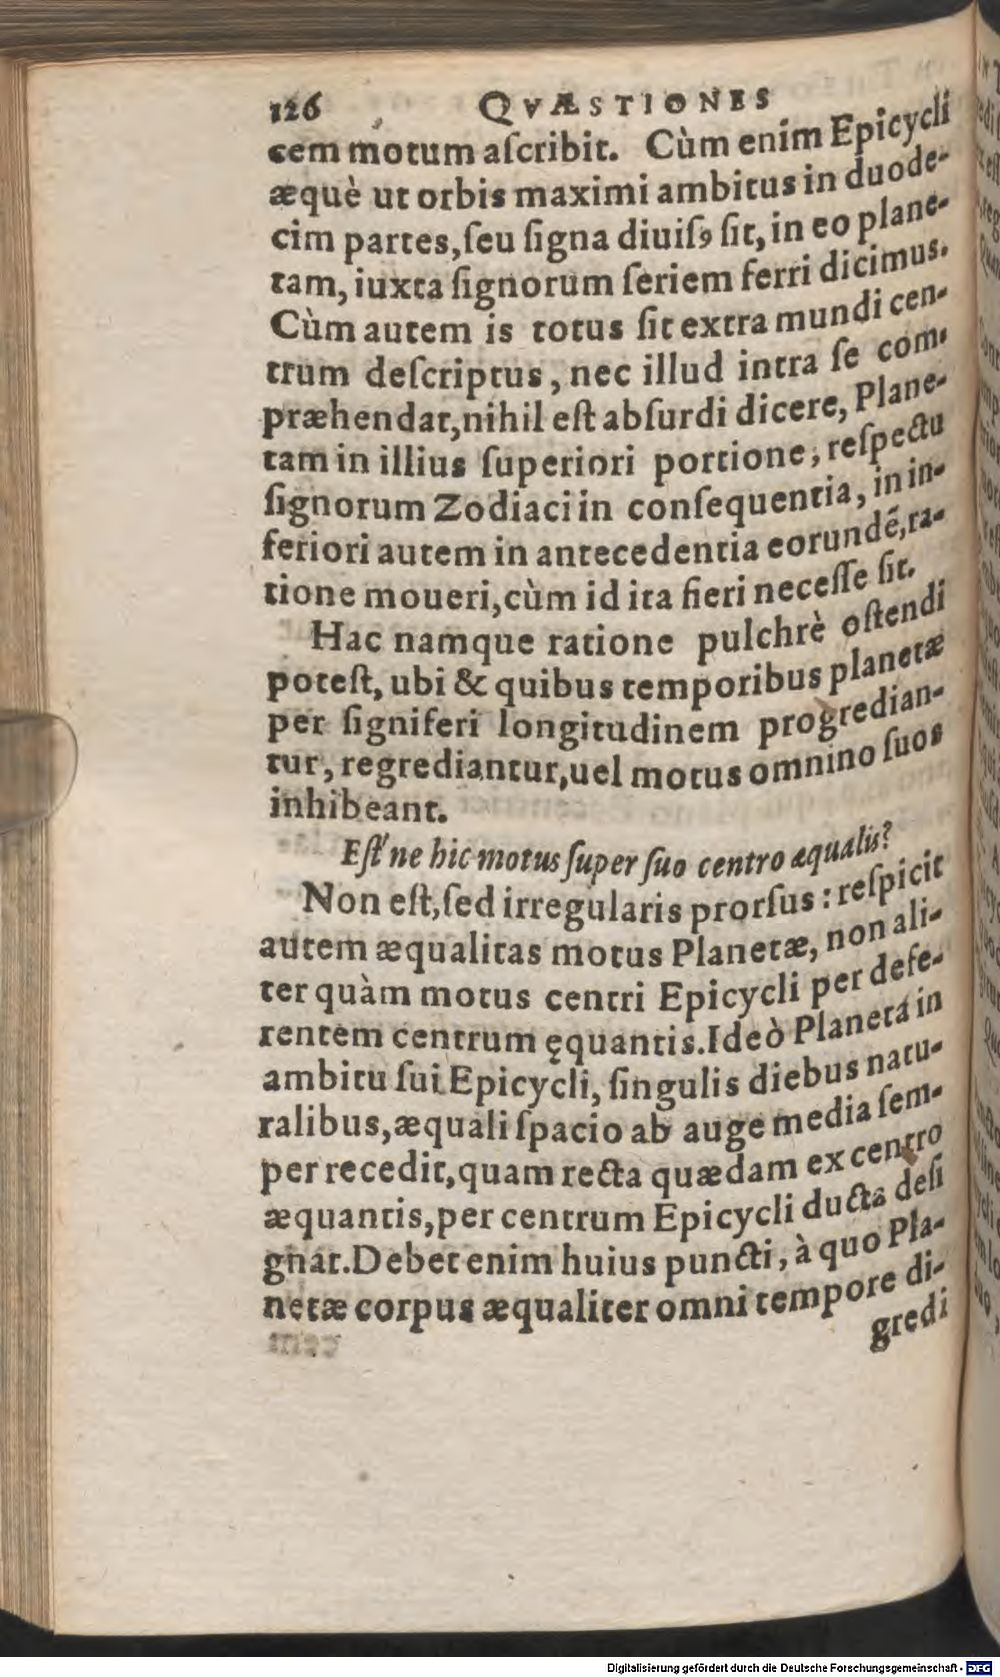 126 QVÆSTIONES
cem motum aſcribit. Cùm enim Epicycli
æquè ut orbis maximi ambitus in duode-
cim partes, ſeu ſigna diuiſꝯ ſit, in eo plane-
tam, iuxta ſignorum ſeriem ferri dicimus.
Cùm autem is totus ſit extra mundi cen-
trum deſcriptus, nec illud intra ſe com-
præhendat, nihil eſt abſurdi dicere, Plane-
tam in illius ſuperiori portione, reſpectu
ſignorum Zodiaci in conſequentia, in in-
feriori autem in antecedentia eorundẽ, ra-
tione moueri, cùm id ita fieri neceſſe ſit.
Hac namque ratione pulchrè oſtendi
poteſt, ubi & quibus temporibus planetæ
per ſigniferi longitudinem progredian-
tur, regrediantur, uel motus omnino ſuos
inhibeant.
Eſt'ne hic motus ſuper ſuo centro æqualis?
Non eſt, ſed irregularis prorſus: reſpicit
autem æqualitas motus Planetæ, non ali-
ter quàm motus centri Epicycli per defe-
rentem centrum ęquantis. Ideò Planeta in
ambitu ſui Epicycli, ſingulis diebus natu-
ralibus, æquali ſpacio ab auge media ſem-
per recedit, quam recta quædam ex centro
æquantis, per centrum Epicycli ducta deſi
gnat. Debet enim huius puncti, à quo Pla-
netæ corpus æqualiter omni tempore di-
gredi
Digitalisierung gefördert durch die Deutsche Forschungsgemeinschaft - DFG